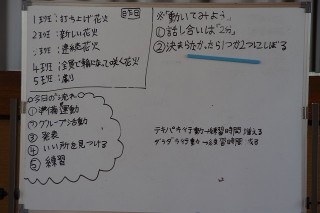 1班:打ち上げ花火
2班:新しい花火
3班:連続花火
4班:全員で輪になって咲く花火
5班:
今日の流れ
①準備運動
②グループ活動
③発表
④いい所を見つける
⑤練習
※「動いてみよう」
①話し合いは「2分」
②決まらなかったら1つか2つにしぼる
テキパキ行動→練習時間 増える
ダラダラ行動→練習時間